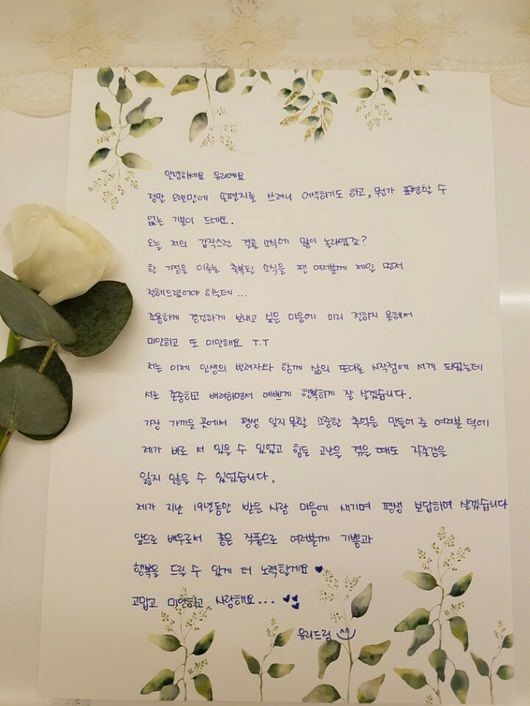 안녕하세요 유리에요
정말 오랜만에 손편지를 쓰려니 어색하기도 하고, 뭔가 표현할 수
없는 기분이 드네요.
오늘 저의 갑작스런 결혼 소식에 많이 놀라셨죠?
한 가정을 이루는 축복된 소식을 팬 여러분께 제일 먼저
전해드렸어야 하는데...
조용하게 경건하게 보내고 싶은 마음에 미리 전하지 못해서
미안하고 또 미안해요 T.T
저는 이제 인생의 반려자와 함께 삶의 또다른 시작점에 서게 되었는데
서로 존중하고 배려하면서 예쁘게 행복하게 잘 살겠습니다.
가장 가까운 곳에서 평생 잊지못할 소중한 추억을 만들어 준 여러분 덕에
제가 바로 서 있을 수 있었고 힘든 고난을 겪을 때도 자존감을
잃지 않을 수 있었습니다.
제가 지난 19년동안 받은 사랑 마음에 새기며 평생 보답하며 살겠습니다
앞으로 배우로서 좋은 작품으로 여러분께 기쁨과
행복을 드릴 수 있게 더 노력할게요
고맙고 미안하고 사랑해요...
유리드림